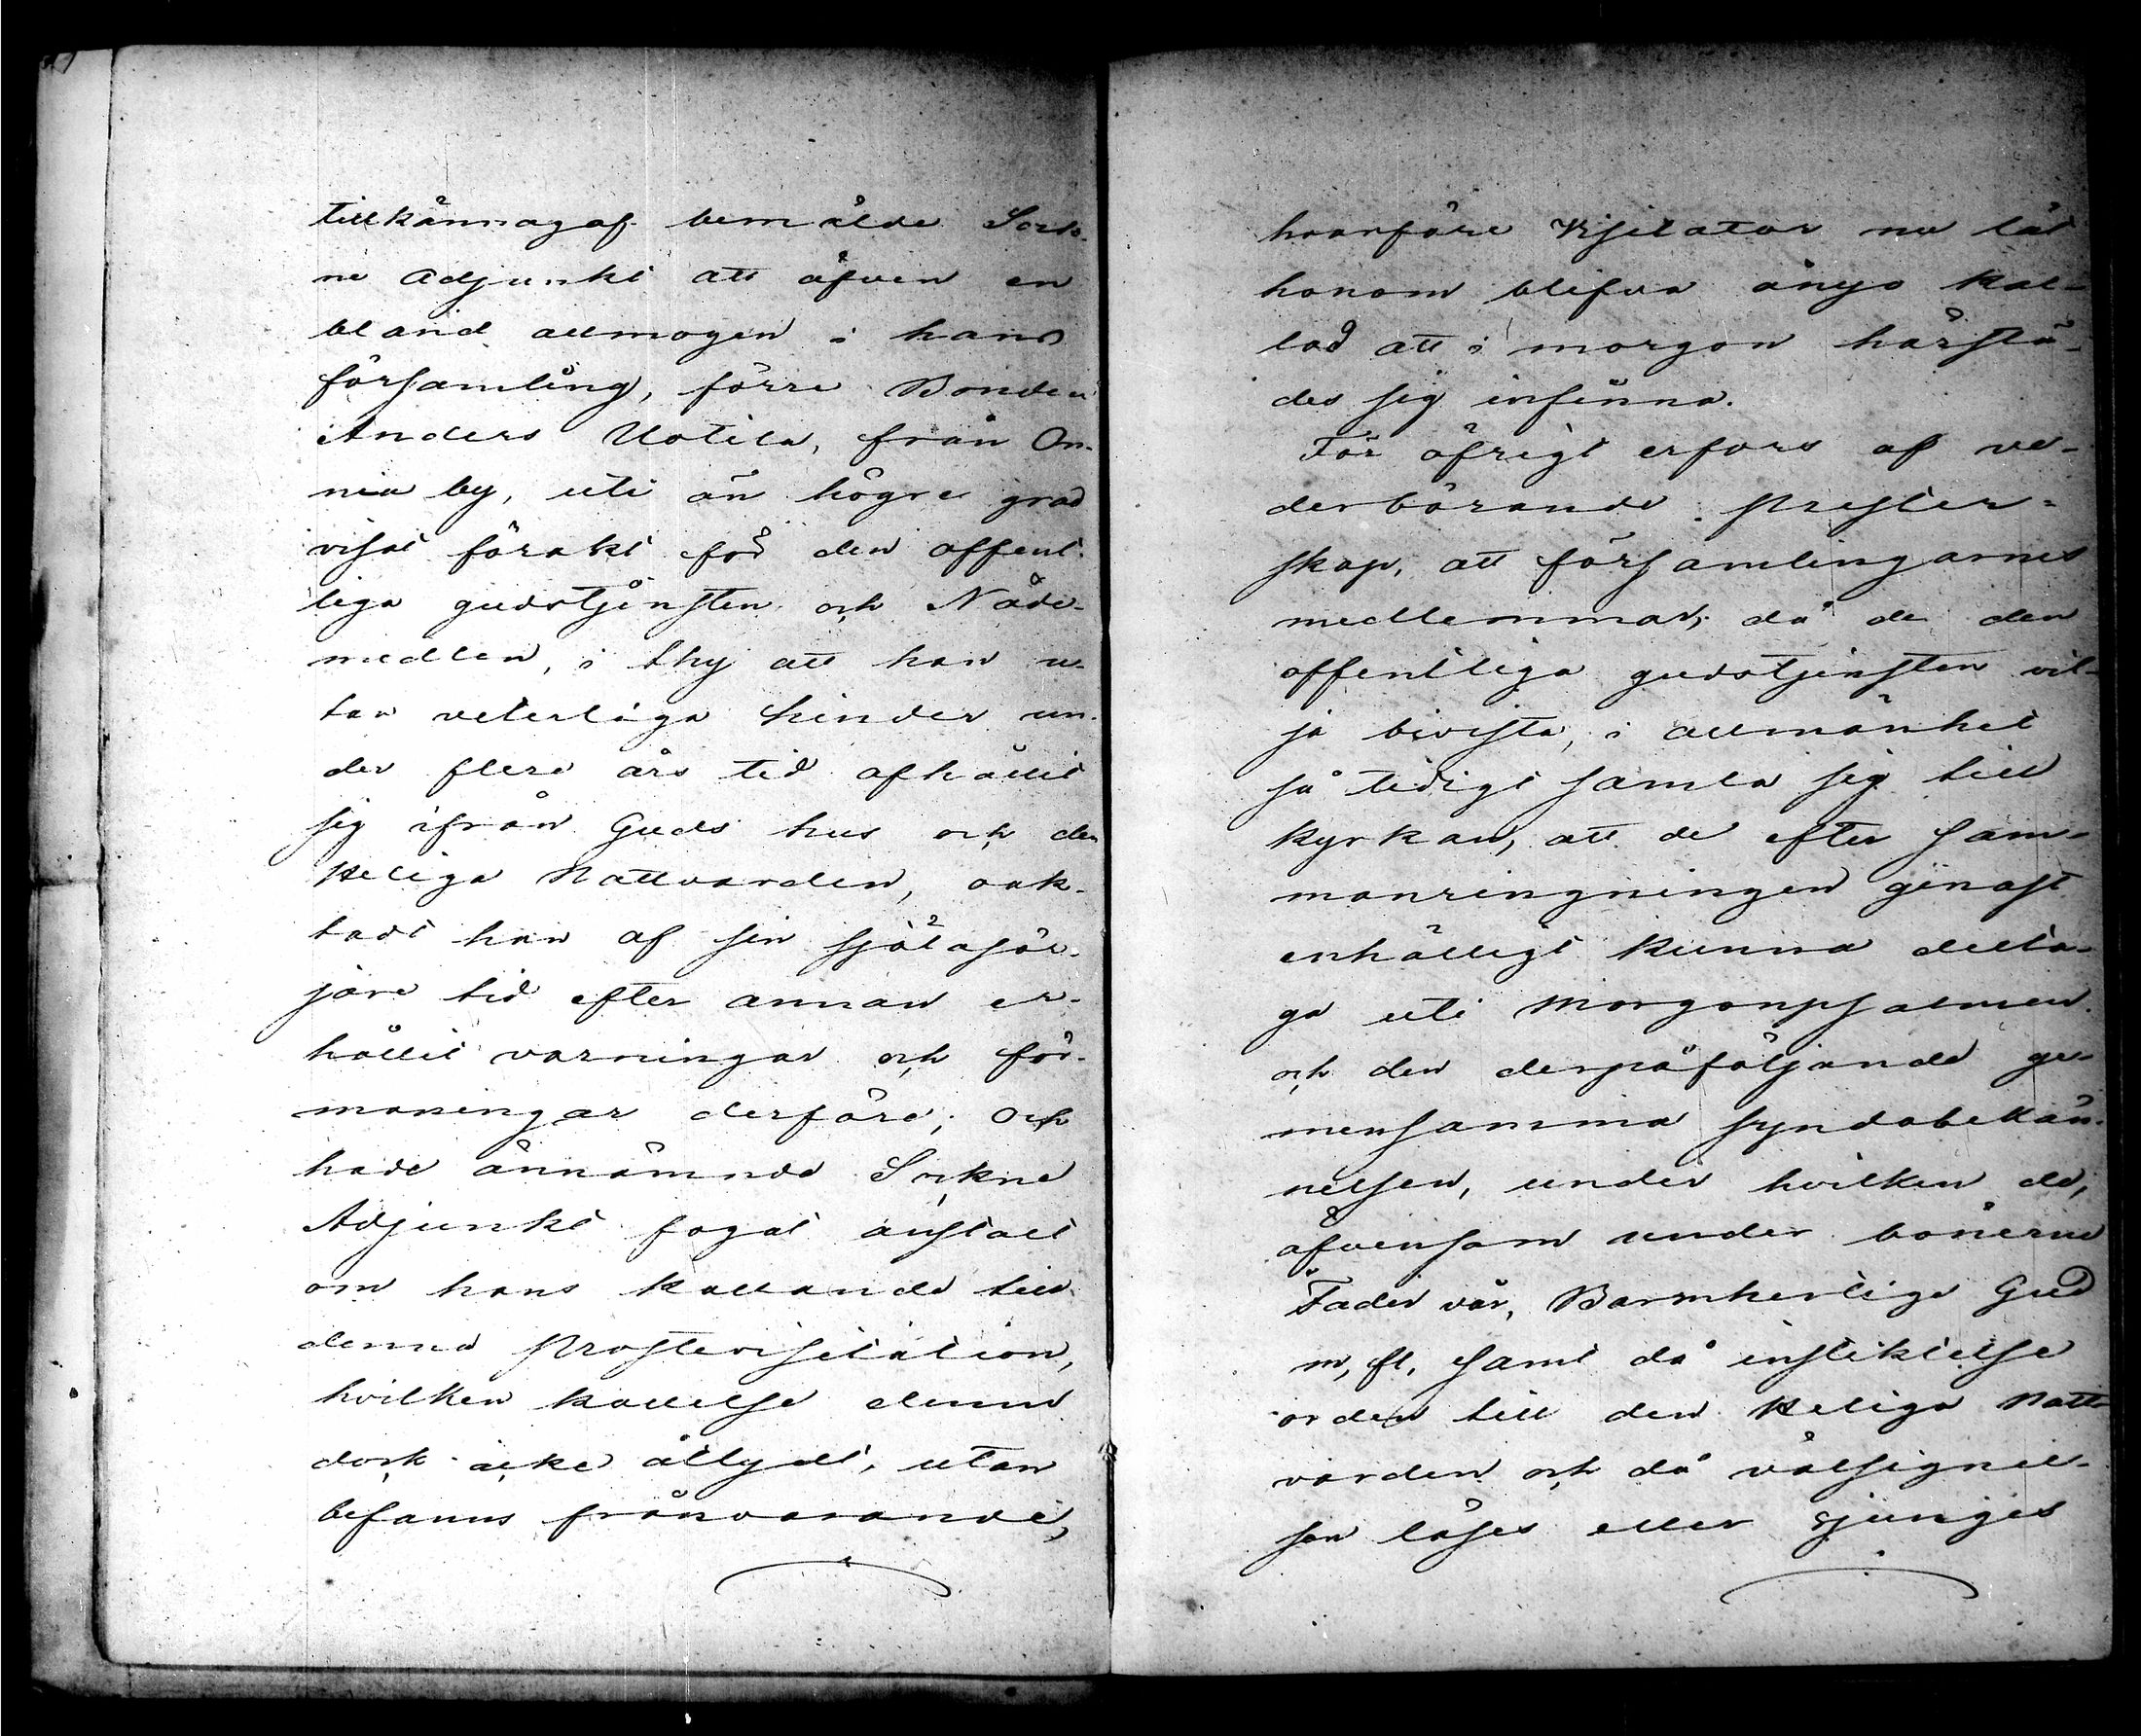 tillkännagaf bemälde Sock-
ne Adjunkt att äfven en
bland allmogen i hans
församling, förre Bonden
Anders Uotila, från On-
nia by, uti än högre grad
visat förakt för den offent-
liga gudstjänsten och Nåde-
medlen, i thy att han u-
tan veterliga hinder un-
der flere års tid afhållit
sig ifrån Guds hus och den
Heliga Nattvarden, oak-
tadt han af sin själasör-
jare tid efter annan er-
hållit varningar och för-
maningar derföre; och
hade ännämnde Sockne
Adjunkt fogat anstalt
om hans kallande till
denna Prostevisitation,
hvilken kallelse denne
dock icke åtlydt, utan
befanns frånvarande,
hvarföre Visitator nu lät
honom blifva ånyo kal-
lad att i morgon härstä-
des sig infinna.
För öfrigt erfors af ve-
derbörande Prester-
skap, att församlingarnes
medlemmar, då de den
offentliga gudstjensten vil-
ja bivista, i allmänhet
så tidigt samla sig till
kyrkan, att de efter sam-
manringningen genast
enhälligt kunna delta-
ga uti Morgonpsalmen
och den derpåföljande ge-
mensamma syndabekän-
nelsen, under hvilken de,
äfvensom under bönerne
Fader vår, Barmhertige Gud
m, fl, samt då instiktelse
orden till den Heliga Natt-
varden och då välsignel-
sen läses eller sjunges